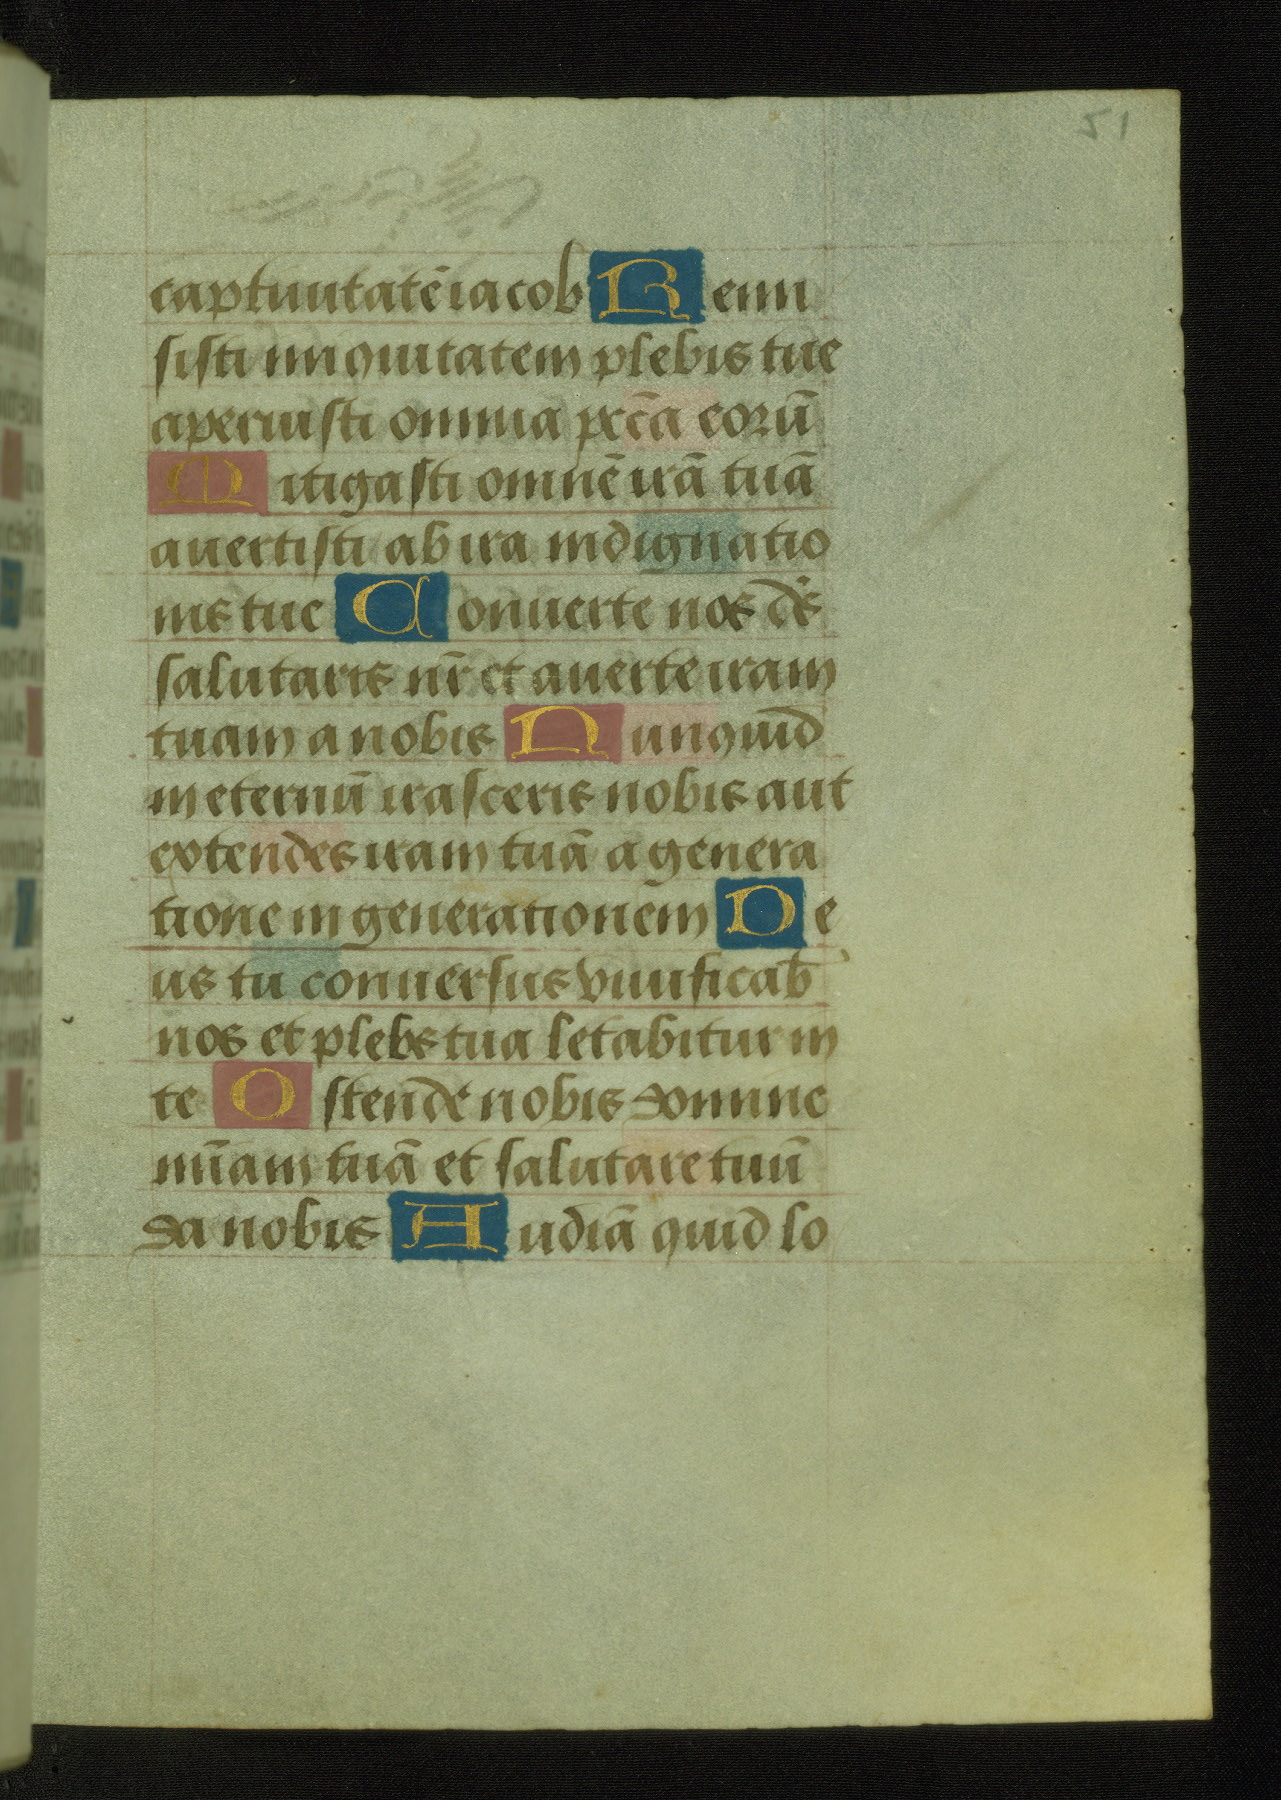 51
captiuitatē iacob Remi
sisti iniquitatem plebis tue
aperuisti omnia pctā eorū
Mitigasti omnē irā tuā
auertisti ab ira indignatio
nis tue Conuerte nos dš
salutaris nr̄ et auerte iram
tuam a nobis Nunquid
in eternū irasceris nobis aut
extendes iram tuā a genera
tione in generationem De
us tu conuersus viuificab̄
nos et plebs tua letabitur in
te Ostende nobis domine
mīam tuā et salutare tuū
da nobis Audiā quid lo